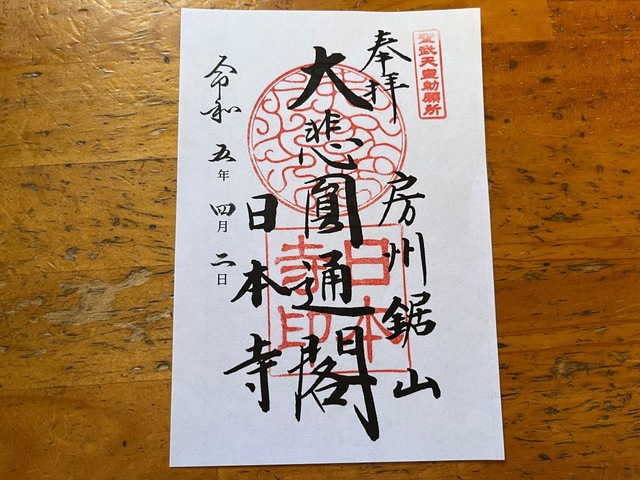 聖武天皇勅願所
奉拝
房州鋸山
大悲圓通閣
日本寺
日本寺印
令和五年四月二日